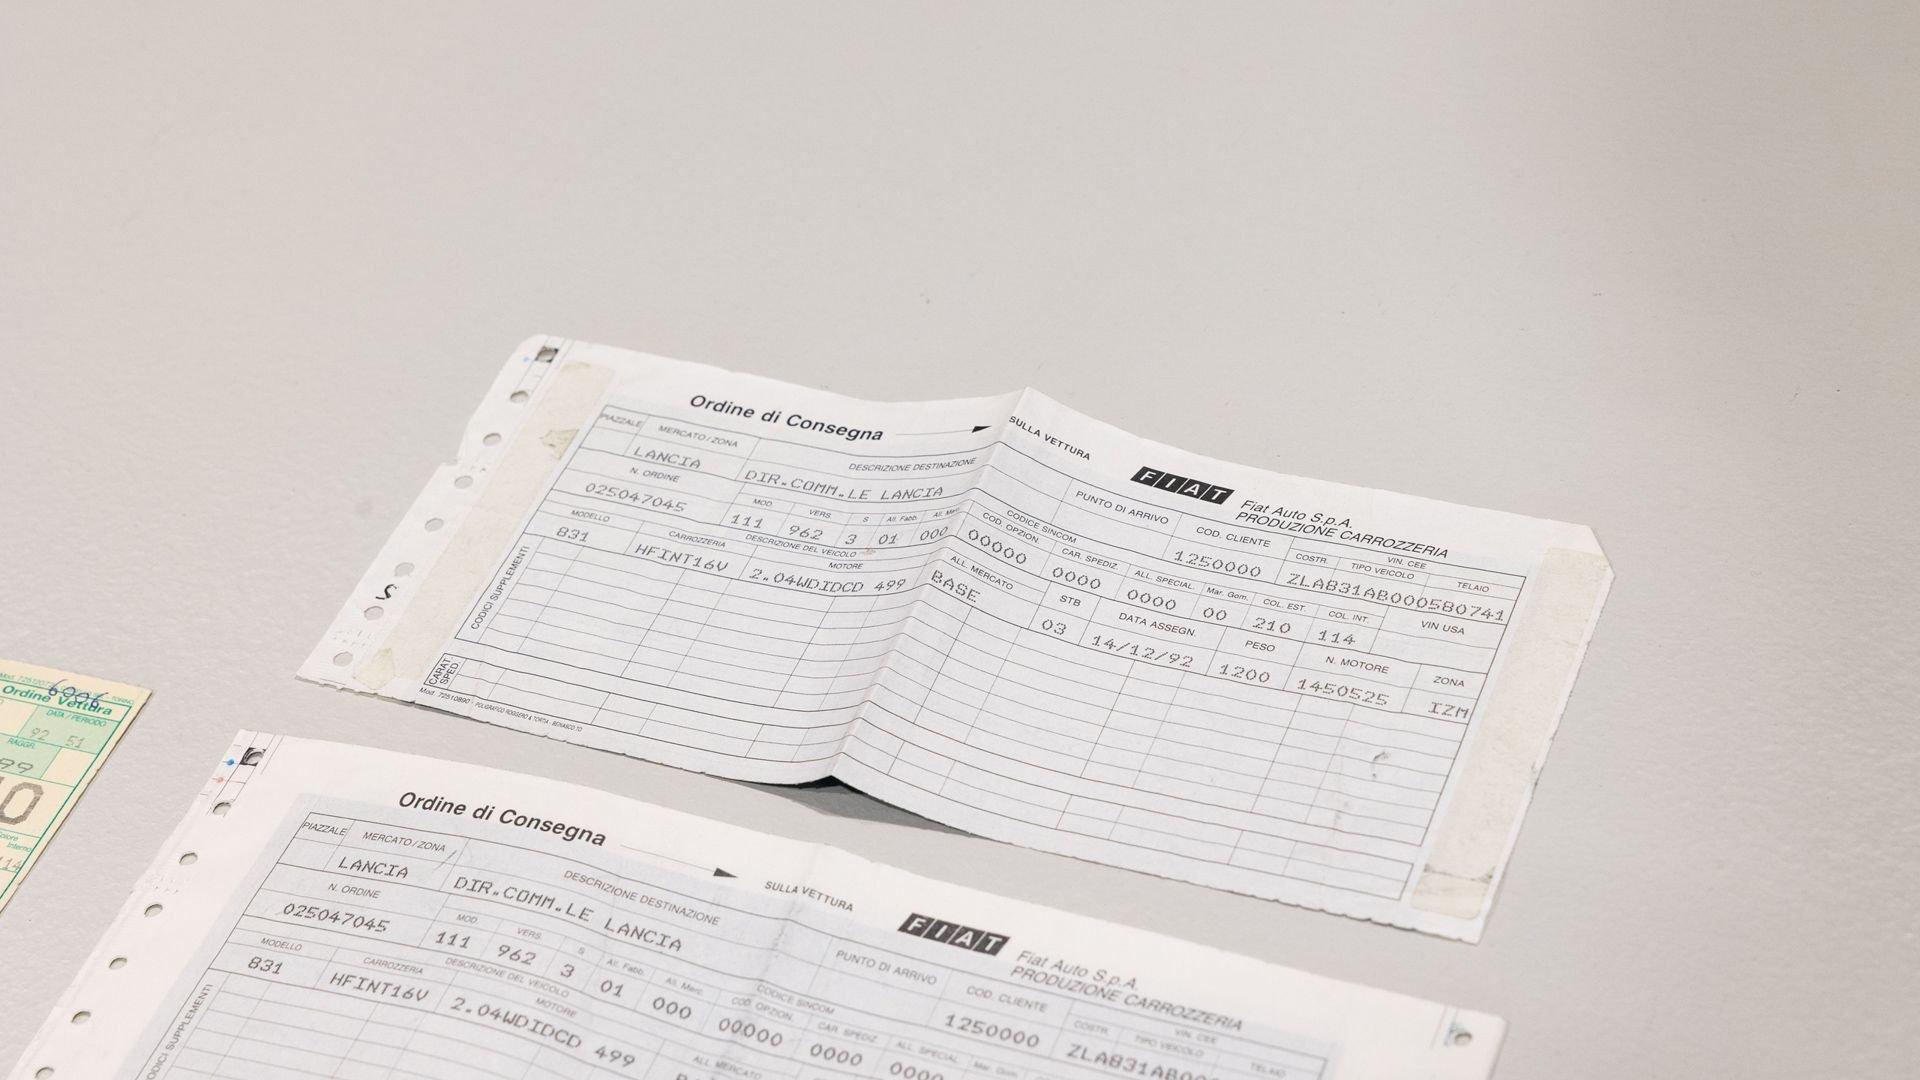 Ordine di Consegna SULLA VETTURA
FIAT Fiat Auto S.p.A.
PRODUZIONE CARROZZERIA
PIAZZALE MERCATO/ZONA DESCRIZIONE DESTINAZIONE PUNTO DI ARRIVO COD. CLIENTE COSTR. VIN. CEE TIPO VEICOLO TELAIO
LANCIA DIR.COMM.LE LANCIA 1250000 ZLA831AB000580741
N. ORDINE MOD VERS. S All. Fabb. All. Merc. CODICE SINCOM COD. OPZION. CAR. SPEDIZ. ALL. SPECIAL. Mar. Gom. COL. EST. COL. INT. VIN USA
025047045 111 962 3 01 000 00000 0000 0000 00 210 114
MODELLO CARROZZERIA DESCRIZIONE DEL VEICOLO MOTORE ALL. MERCATO STB DATA ASSEGN. PESO N. MOTORE ZONA
831 HFINT16V 2.04WDIDCD 499 BASE 03 14/12/92 1200 1450525 IZM
CODICI SUPPLEMENTI
CARAT. SPED.
S
6006
Ordine Vettura
DATA / PERIODO
92 51
RAGGR.
99
Interno
Ordine di Consegna SULLA VETTURA
FIAT Fiat Auto S.p.A.
PRODUZIONE CARROZZERIA
PIAZZALE MERCATO/ZONA DESCRIZIONE DESTINAZIONE PUNTO DI ARRIVO COD. CLIENTE COSTR. VIN. CEE TIPO VEICOLO TELAIO
LANCIA DIR.COMM.LE LANCIA 1250000 ZLA831AB00
N. ORDINE MOD VERS. S All. Fabb. All. Merc. CODICE SINCOM COD. OPZION. CAR. SPEDIZ. ALL. SPECIAL. Mar. Gom.
025047045 111 962 3 01 000 00000 0000 0000
MODELLO CARROZZERIA DESCRIZIONE DEL VEICOLO MOTORE ALL. MERCATO
831 HFINT16V 2.04WDIDCD 499
ODICI SUPPLEMENTI